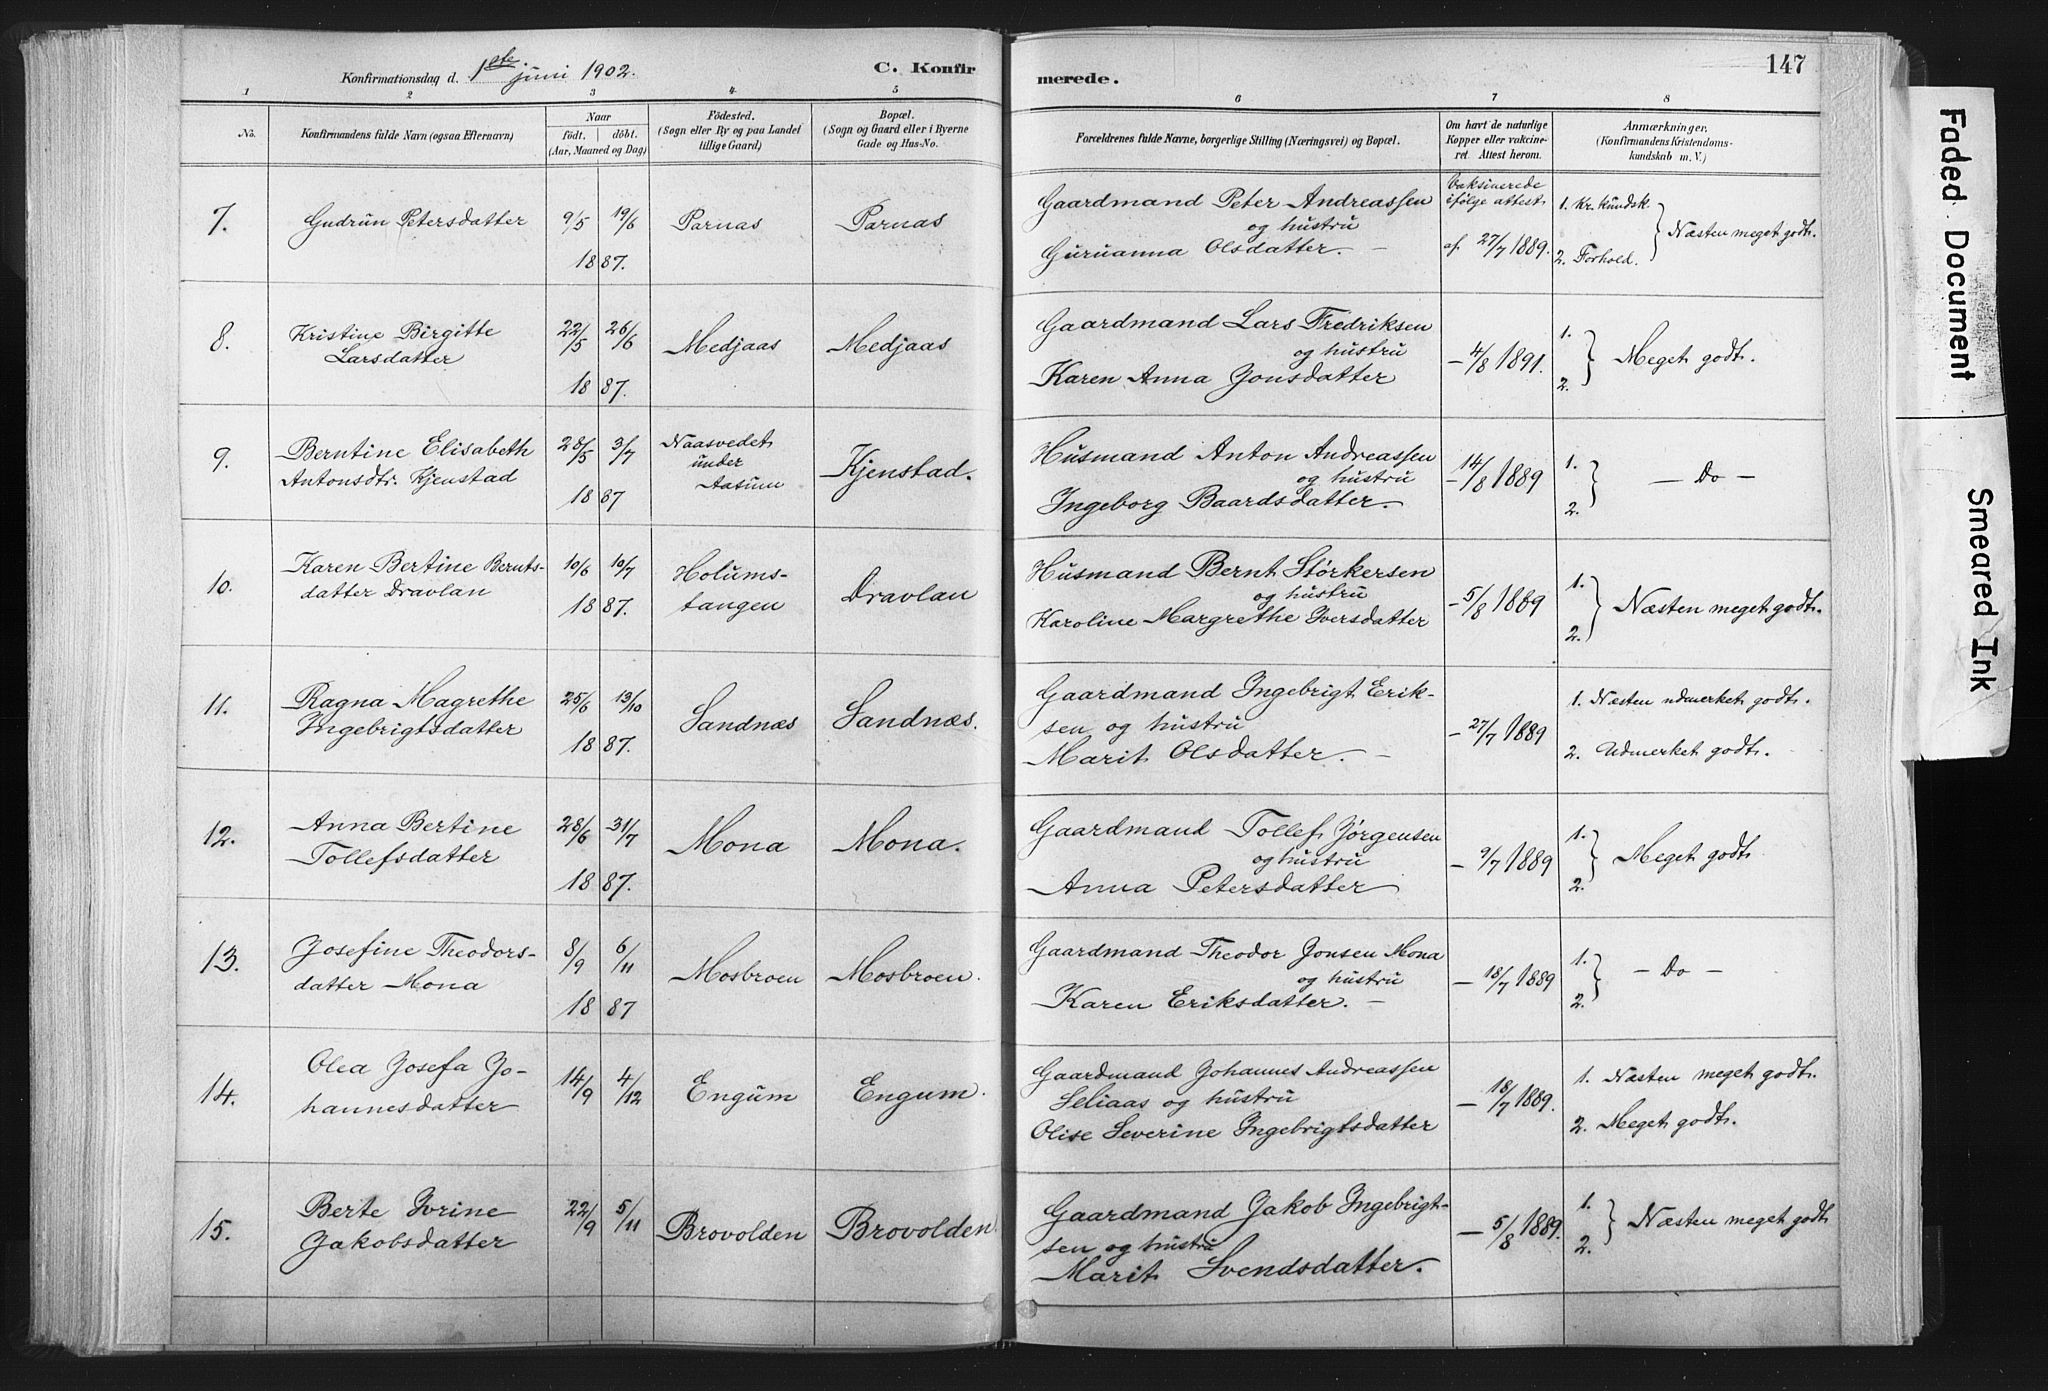 Konfirmationsdag d. 1ste juni 1902.
C. Konfir
merede.
147
1 2 3 4 5 6 7 8
No.
Konfirmandens fulde Navn (ogsaa Efternavn)
Naar
födt. döbt.
(Aar, Maaned og Dag)
Födested.
(Sogn eller By og paa Landet
tillige Gaard)
Bopæl.
(Sogn og Gaard eller i Byerne
Gade og Hus-No.
Forældrenes fulde Navne, borgerlige Stilling (Næringsvei) og Bopæl.
Om havt de naturlige
Kopper eller vakcine-
ret. Attest herom.
Anmærkninger.
(Konfirmandens Kristendoms-
kundskab m. V.)
7. Gudrun Petersdatter 9/5 19/6 1887. Parnas Parnas
Gaardmand Peter Andreassen
og hustru
Guruanna Olsdatter. —
Vaksinerede
ifølge attest
af 27/7 1889.
1. Kr. kundsk.
2. Forhold.
Næsten meget godt.
8. Kristine Birgitte
Larsdatter
22/5 26/6 1887. Medjaas Medjaas
Gaardmand Lars Fredriksen
og hustru
Karen Anna Jonsdatter
— 4/8 1891.
1.
2.
Meget godt.
9. Berntine Elisabeth
Antonsdtr. Kjenstad
28/5 3/7 1887
Naasvedet
under
Aasum
Kjenstad.
Husmand Anton Andreassen
og hustru
Ingeborg Baardsdatter.
— 14/8 1889
1.
2.
— Do —
10. Karen Bertine Bernts-
datter Dravlan
10/6 10/7 1887.
Holums-
tangen
Dravlan
Husmand Bernt Størkersen
og hustru
Karoline Margrethe Iversdatter
— 5/8 1889
1.
2.
Næsten meget godt.
11. Ragna Magrethe
Ingebrigtsdatter
25/6 13/10 1887. Sandnæs Sandnæs.
Gaardmand Ingebrigt Erik-
sen og hustru
Marit Olsdatter. —
— 27/7 1889
1. Næsten udmerket godt.
2. Udmerket godt.
12. Anna Bertine
Tollefsdatter
28/6 31/7 1887. Mona Mona.
Gaardmand Tollef Jørgensen
og hustru
Anna Petersdatter
— 9/7 1889
1.
2.
Meget godt
13. Josefine Theodors-
datter Mona
8/9 6/11 1887 Mosbroen Mosbroen.
Gaardmand Theodor Jonsen Mona
og hustru
Karen Eriksdatter. —
— 18/7 1889
1.
2.
— Do —
14. Olea Josefa Jo-
hannesdatter
14/9 4/12 Engum Engum.
Gaardmand Johannes Andreassen
Seliaas og hustru
Olise Severine Ingebrigtsdatter
— 18/7 1889.
1. Næsten meget godt.
2. Meget godt.
15. Berte Ivrine
Jakobsdatter
22/9 5/11 Brovolden Brovolden
Gaardmand Jakob Ingebrigt-
sen og hustru
Marit Svendsdatter.
— 5/8 1889.
1.
2.
Næsten meget godt
Faded Document
Smeared Ink